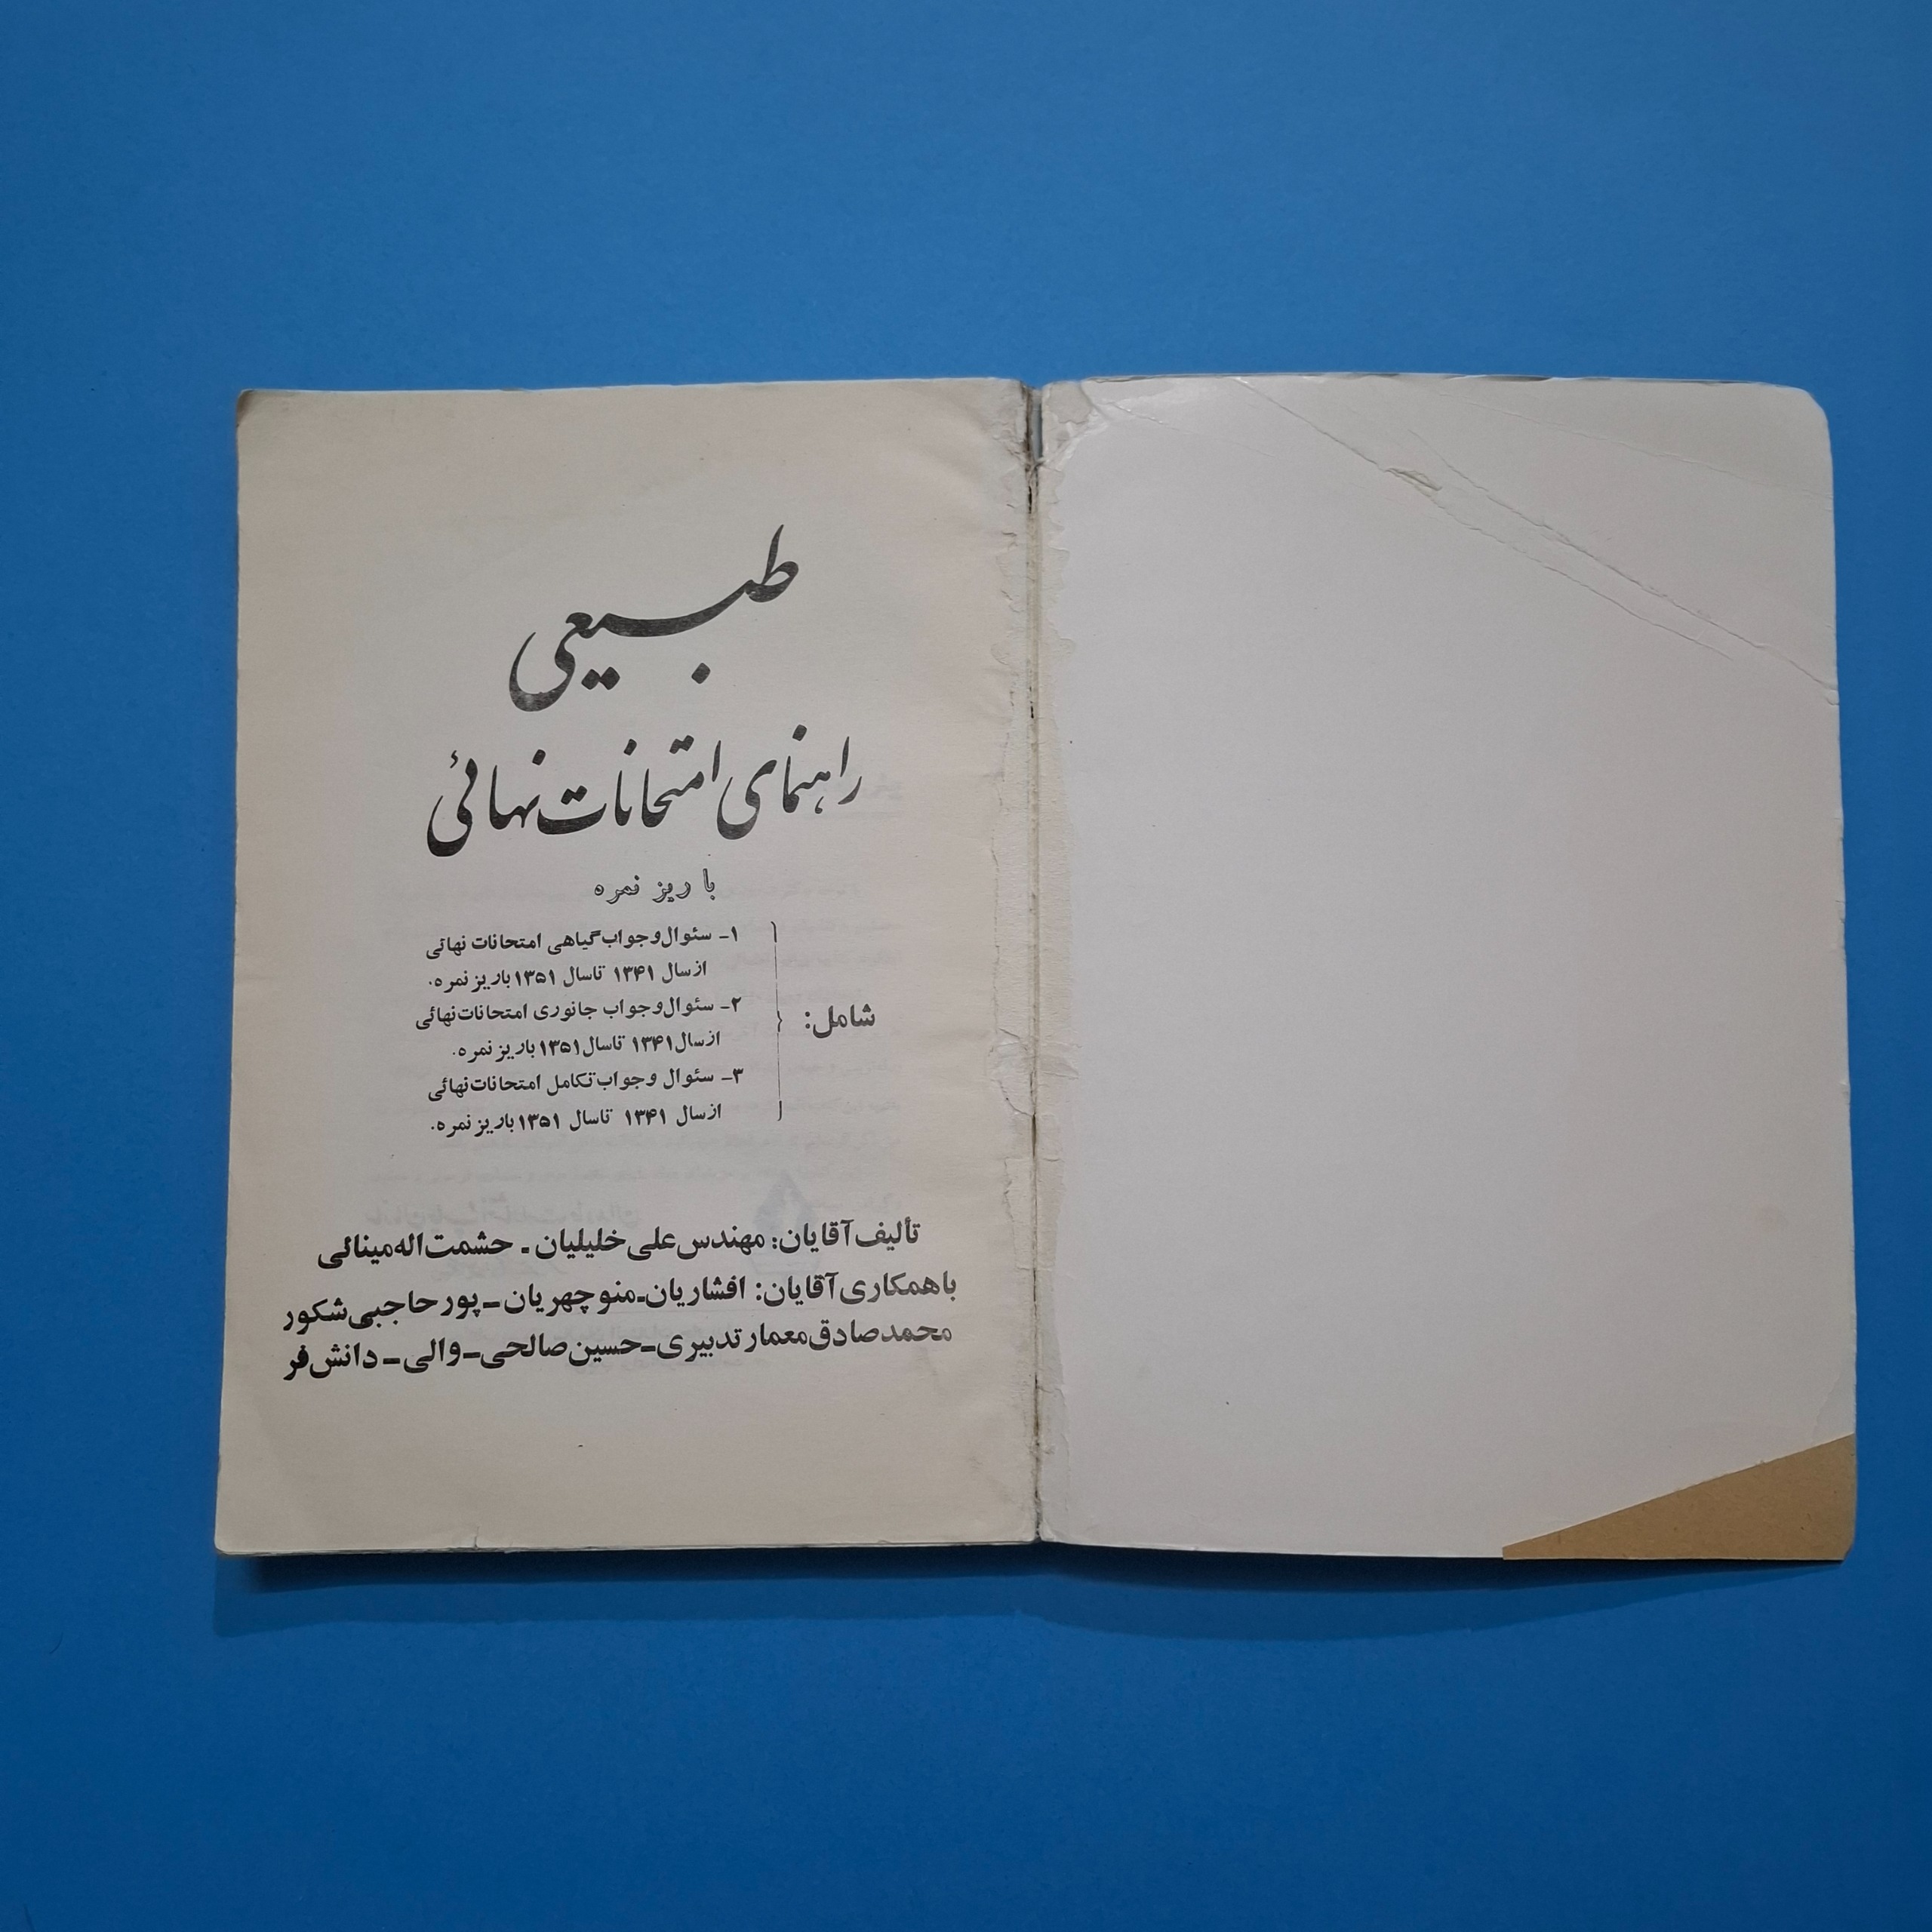 طبیعی
راهنمای امتحانات نهائی
با ریز نمره
شامل:
۱- سئوال و جواب گیاهی امتحانات نهائی
از سال ۱۳۴۱ تا سال ۱۳۵۱ باریز نمره.
۲- سئوال و جواب جانوری امتحانات نهائی
از سال ۱۳۴۱ تا سال ۱۳۵۱ باریز نمره.
۳- سئوال و جواب تکامل امتحانات نهائی
از سال ۱۳۴۱ تا سال ۱۳۵۱ باریز نمره.
تألیف آقایان: مهندس علی خلیلیان - حشمت اله مینائی
باهمکاری آقایان: افشاریان - منوچهریان - پور حاجبی شکور
محمد صادق معمار تدبیری - حسین صالحی - والی - دانش فر